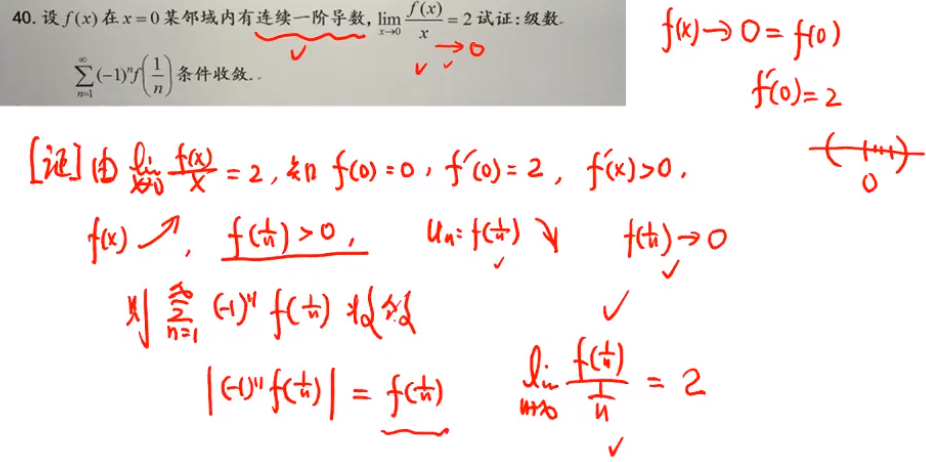 40. 设 f(x) 在 x=0 某邻域内有连续一阶导数, lim_{x→0} f(x)/x = 2 试证:级数
→0
∑_{n=1}^{∞} (-1)^n f(1/n) 条件收敛.
f(x)→0=f(0)
f'(0)=2
0
[证] 由 lim_{x→0} f(x)/x = 2, 知 f(0)=0, f'(0)=2, f'(x)>0.
f(x)↗, f(1/n)>0, u_n=f(1/n)↘ f(1/n)→0
则 ∑_{n=1}^{∞} (-1)^n f(1/n) 收敛
|(-1)^n f(1/n)| = f(1/n) lim_{n→∞} f(1/n)/(1/n) = 2